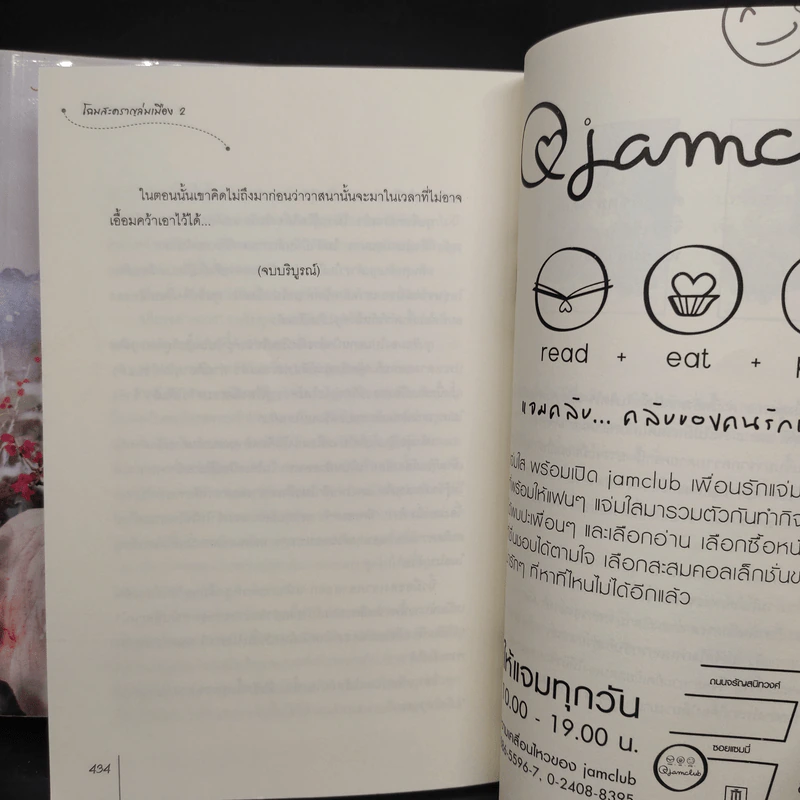 โฉมสะคราญล่มเมือง 2
ในตอนนั้นเขาคิดไม่ถึงมาก่อนว่าวาสนานั้นจะมาในเวลาที่ไม่อาจ
เอื้อมคว้าเอาไว้ได้...
(จบบริบูรณ์)
434
@jamc
read + eat + p
แจมคลับ... คลับของคนรักแ
จ่มใส พร้อมเปิด jamclub เพื่อนรักแจ่ม
ที่พร้อมให้แฟนๆ แจ่มใสมารวมตัวกันทำกิจ
ได้พบปะเพื่อนๆ และเลือกอ่าน เลือกซื้อหนั
ที่ชื่นชอบได้ตามใจ เลือกสะสมคอลเล็กชั่นข
น่ารักๆ ที่หาที่ไหนไม่ได้อีกแล้ว
ให้แจมทุกวัน
10.00 - 19.00 น.
ความเคลื่อนไหวของ jamclub
466-5596-7, 0-2408-8395
ถนนจรัญสนิทวงศ์
ซอยแซมมี่
@jamclub